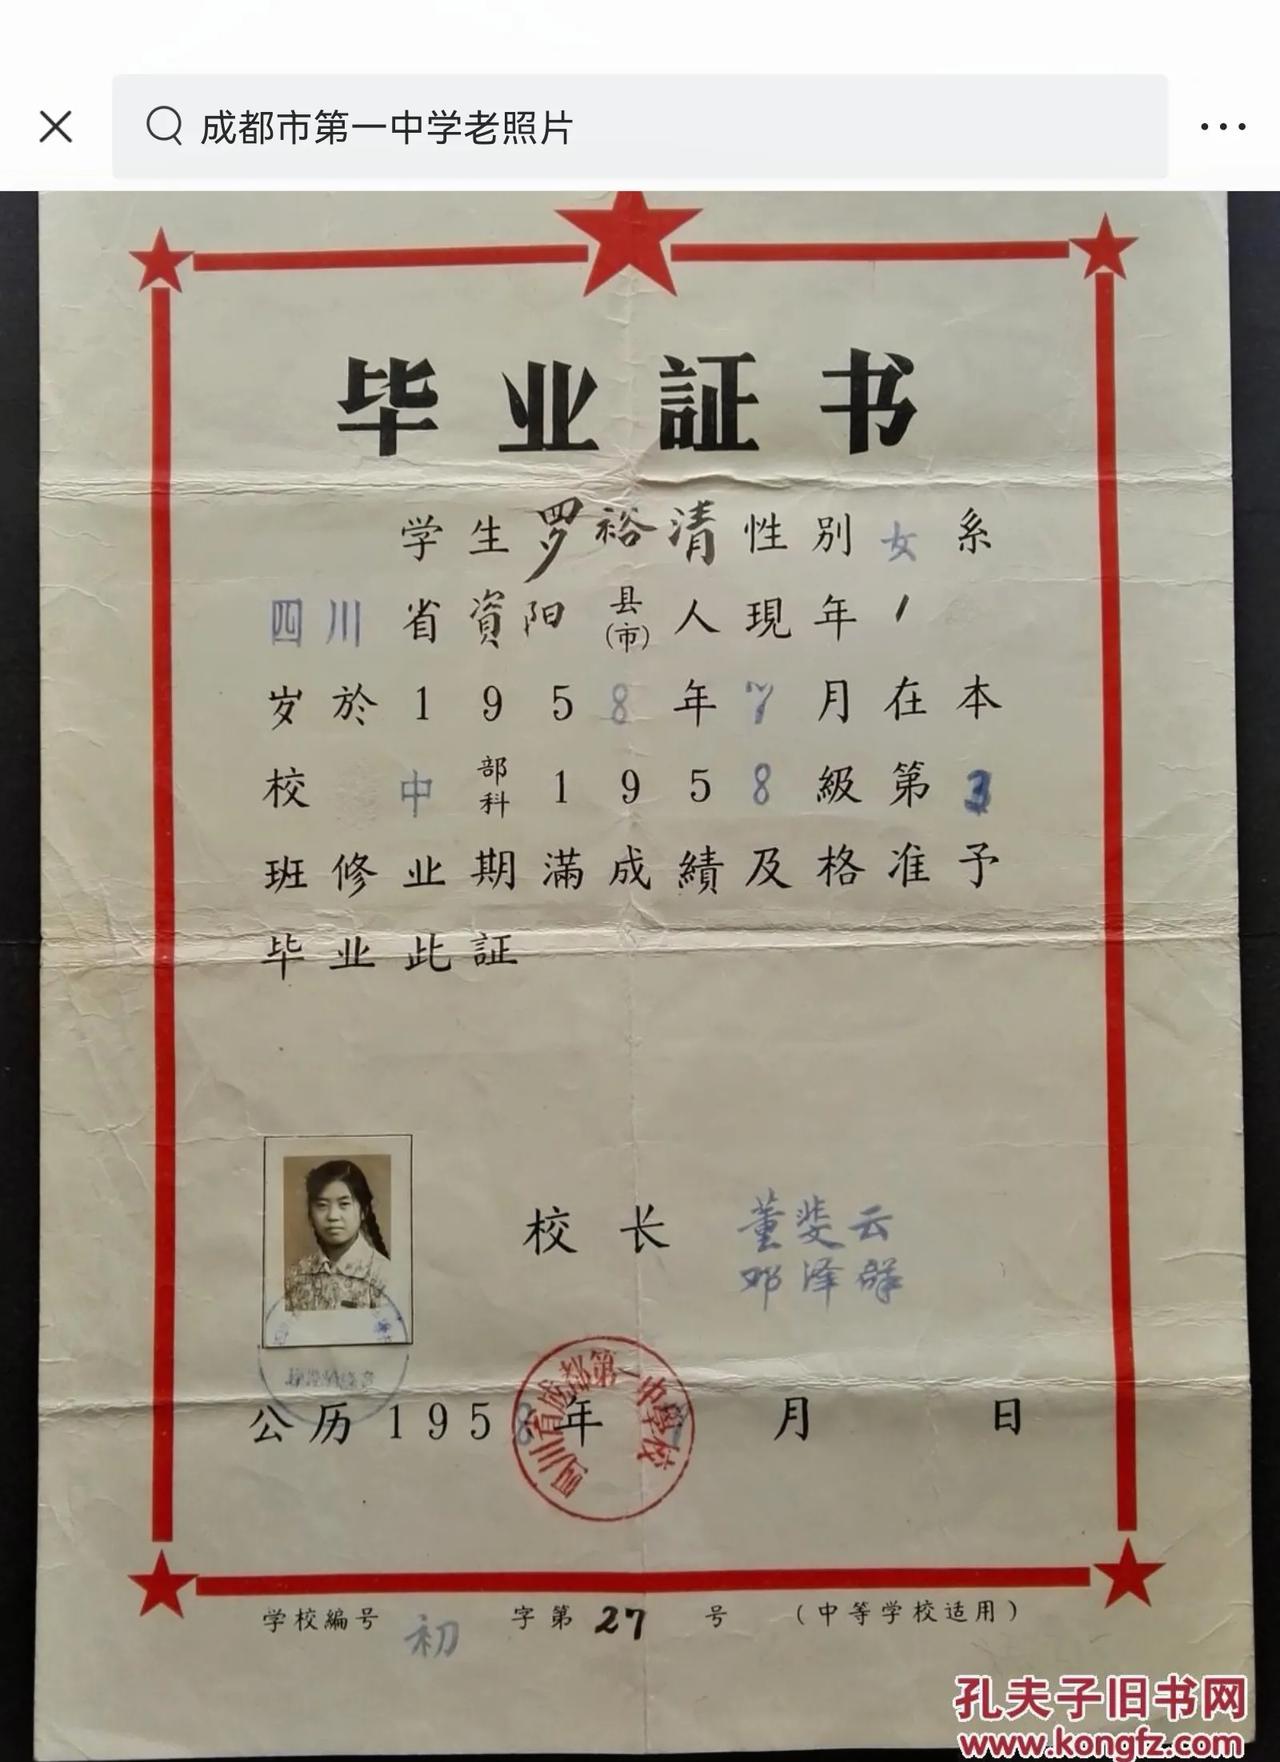 成都市第一中学老照片
毕业証书
学生罗裕清性别女系
四川省資阳县(市)人現年1
岁於1958年7月在本
校 中部科1958級第3
班修业期滿成績及格准予
毕业此証
校长 董斐云
邓泽群
四川省成都第一中學校
公历1958年 月 日
学校編号 初 字第27号 (中等学校适用)
孔夫子旧书网
www.kongfz.com